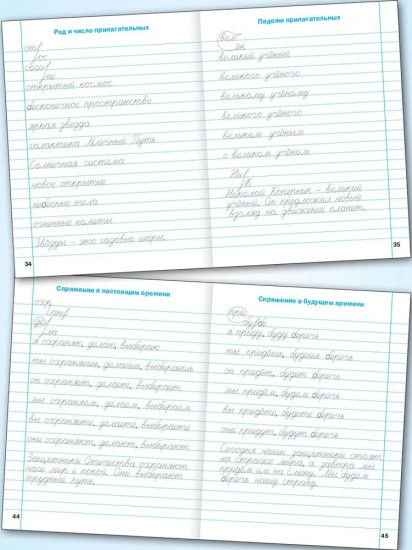 Род и число прилагательных
от
рос
свой
ни
открытый космос
бесконечное пространство
яркая звезда
галактика Млечный Путь
Солнечная система
новое открытие
небесные тела
огненные кометы
Звёзды – это газовые шары.
34
Падежи прилагательных
вел
ён
великий учёный
великого учёного
великому учёному
великого учёного
великим учёным
о великом учёном
Ни
Николай Коперник – великий
учёный. Он предложил новый
взгляд на движение планет.
35
Спряжение в настоящем времени
охр
я охраняю, делаю, выбираю
ты охраняешь, делаешь, выбираешь
он охраняет, делает, выбирает
мы охраняем, делаем, выбираем
вы охраняете, делаете, выбираете
они охраняют, делают, выбирают
Защитники Отечества охраняют
наш мир и покой. Они выбирают
трудный путь.
44
Спряжение в будущем времени
при
буд
я приду, буду беречь
ты придёшь, будешь беречь
он придёт, будет беречь
мы придём, будем беречь
вы придёте, будете беречь
они придут, будут беречь
Сегодня наши защитники стоят
на страже мира, а завтра мы
придём им на смену. Мы будем
беречь нашу страну.
45